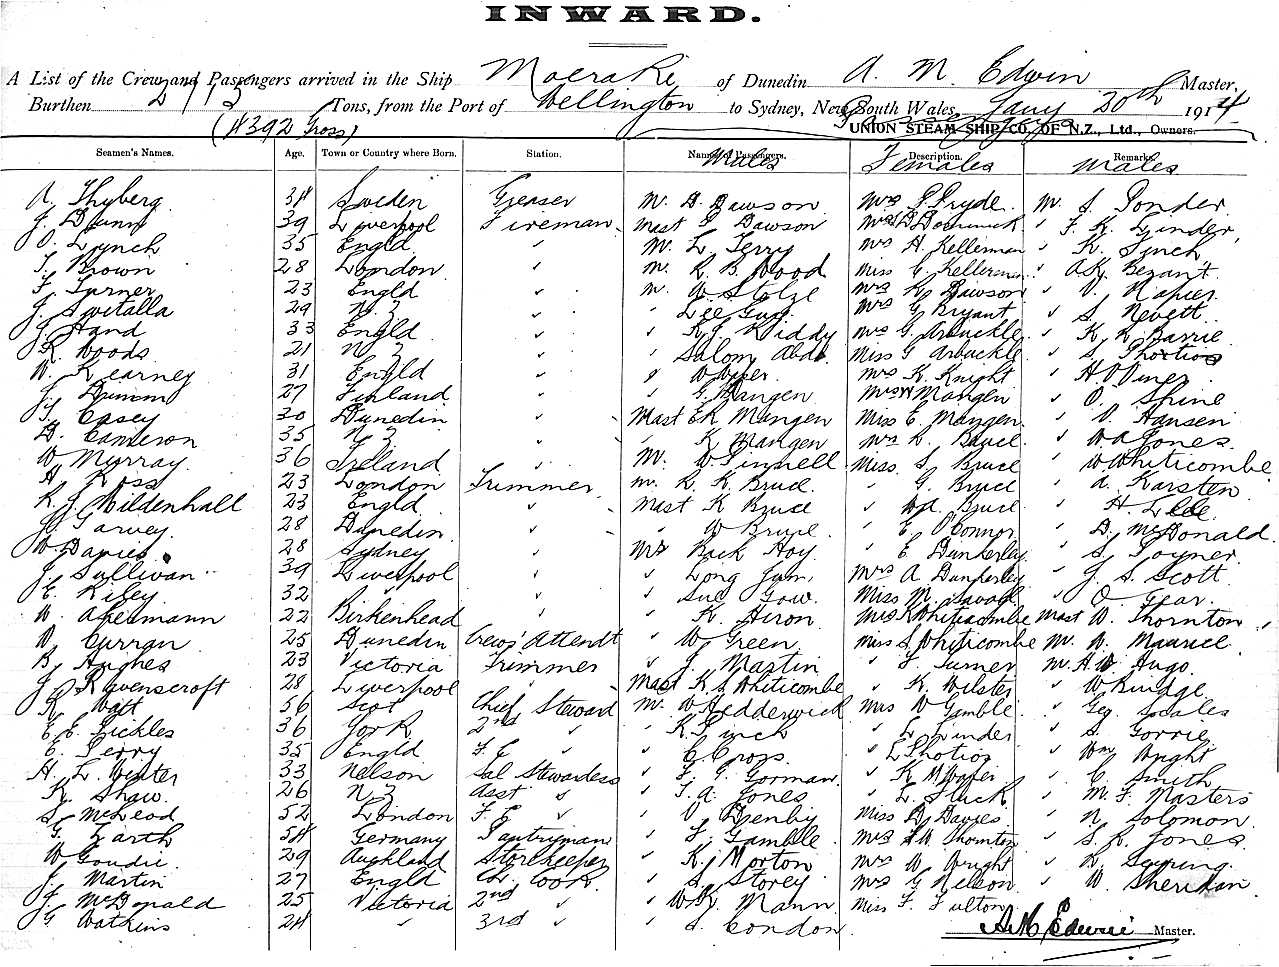 INWARD.
A List of the Crew and Passengers arrived in the Ship Moeraki of Dunedin A. M. Edwin Master,
Burthen 2713 Tons, from the Port of Wellington to Sydney, New South Wales, Jany 20th 1914
(4392 Gross) Passengers UNION STEAM SHIP CO. OF N.Z., Ltd., Owners.
Seamen's Names. Age. Town or Country where Born. Station. Names of Passengers. Males Description. Females Remarks. Males
A. Thyberg 34 Sweden Greaser Mr. D. Dawson Mrs Pryde Mr. S. Ponder
J. Dunn 39 Liverpool Fireman Mast Dawson Mrs F. K. Linder
O. Lynch 35 Engld " Mr. L. Terry Mrs A. Kellerman " K. Lynch
T. Brown 28 London " Mr. R. B. Wood Miss C. Kellerman " Bezant
F. Turner 23 Engld " Mr. W. Stolze Mrs Dawson " Napier
J. Switalla 29 N Z " " Lee Guy Mrs G. Bryant " S. Nevett
J. Hand 33 Engld " " Widdy Mrs G. Arbuckle " Barrie
R. Woods 21 N Z " " Salom Abdo Miss G. Arbuckle " S. Photios
W. Kearney 31 Engld " " Mrs K. Knight " H. O. Piner
J. Dumm 27 Finland " " G. Mangen Mrs W Mangen " O. Shine
T. Casey 30 Dunedin " Mast Mangen Miss E. Mangen " Hansen
D. Cameron 35 N Z " " K. Mangen Mrs Bruce " W A Jones
W. Murray 36 Ireland " Mr. Pinnell Miss S. Bruce " W Whiticombe
H. Ross 23 London Trimmer Mr. R. K. Bruce " G. Bruce " A. Karsten
R. J. Mildenhall 23 Engld " Mast K Bruce " Bruce " H Lee
J. Garvey 28 Dunedin " " W Bruce " E. O'Connor " D. McDonald
W. Davies 28 Sydney " Mr Back Hoy " E Dunkerley " S. Joyner
J. Sullivan 39 Liverpool " " Long Jum Mrs A Dunkerley " J. S. Scott
E. Riley 32 " " " Sue Gow Miss M. " O. Gear
W. Akermann 22 Birkenhead " " K. Hiron Mrs K Whiticombe Mast Thornton
Curran 25 Dunedin Crews' Attendt " W Green Miss S Whiticombe Mr. Maurice
B. Hughes 23 Victoria Trimmer " J. Martin " Turner Mr. H. W. Hugo
J. Ravenscroft 28 Liverpool " Mast K S Whiticombe " K. Wilster " W Budge
R. Watt 56 Scot Chief Steward Mr. W Hedderwick Miss W Gamble " Geo. Scales
C. E. Pickles 36 York 2nd " " K. Punch " L Linder " S. Gorrie
E. Perry 35 Engld F. C " " C Cross " L Photios " Wm Wright
H. L. Winter 33 Nelson Sal Stewardess " F. T. Gorman " K Napier " C. Smith
K. Shaw 26 N Z Asst " " F. A. Jones " L. Fluck " M. F. Masters
S. McLeod 52 London F. C " " Denby Miss D. Davies " N. Solomon
G. Zarth 54 Germany Pantryman " F. Gamble Mrs Thornton " S. R. Jones
W. Goudie 29 Auckland Storekeeper " K. Morton Mrs W. Wright " Spring
J. Martin 27 Engld Ch. Cook " S. Storey Mrs G Nelson " W. Sheridan
J. McDonald 25 Victoria 2nd " " Mann Miss F. Fulton
G Watkins 24 " 3rd " " Condon
A M Edwin Master.